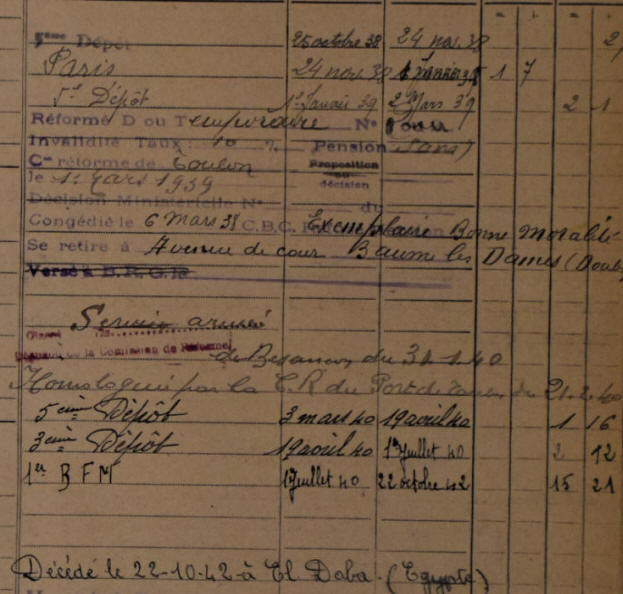 5ème Dépôt 25 octobre 38 24 nov. 38 2
Paris 24 nov. 38 1 7
5e Dépôt 1er Janvier 39 2 Mars 39 2 1
Réformé D ou Temporaire N°
Invalidité Taux: 10 % Pension (sans)
Con réforme de Toulon Proposition ou décision
le 1er Mars 1939
Décision Ministérielle N° du
Congédié le 6 mars 38 C.B.C. Exemplaire Bonne moralité
Se retire à Avenue de cour Baume les Dames (Doubs
Versé à B.R.G. le
Service armé
Décision de la Commission de Réforme
de Besançon du 31.1.40
Homologuée par la C.R du Port de Toulon du 21.2.40
5ème Dépôt 3 mars 40 19 avril 40 1 16
3ème Dépôt 19 avril 40 1er Juillet 40 2 12
1er B F M 1 Juillet 40 22 octobre 42 15 21
Décédé le 22-10-42 à El Daba. (Egypte)